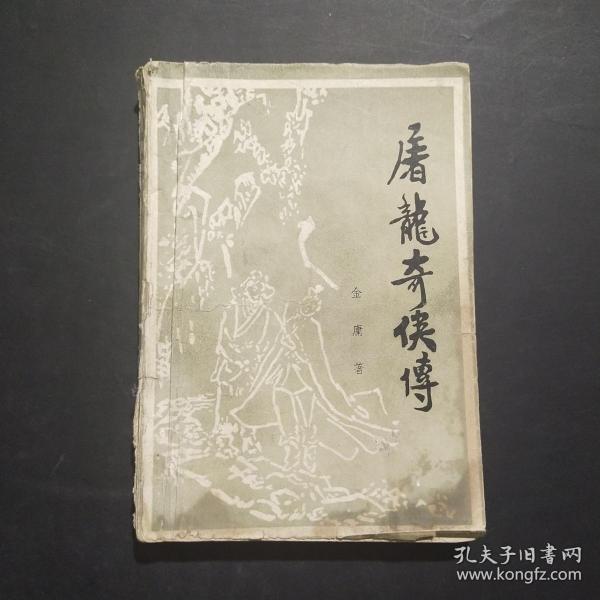 屠龍奇俠傳
金庸著
孔夫子旧書网
www.kongfz.com